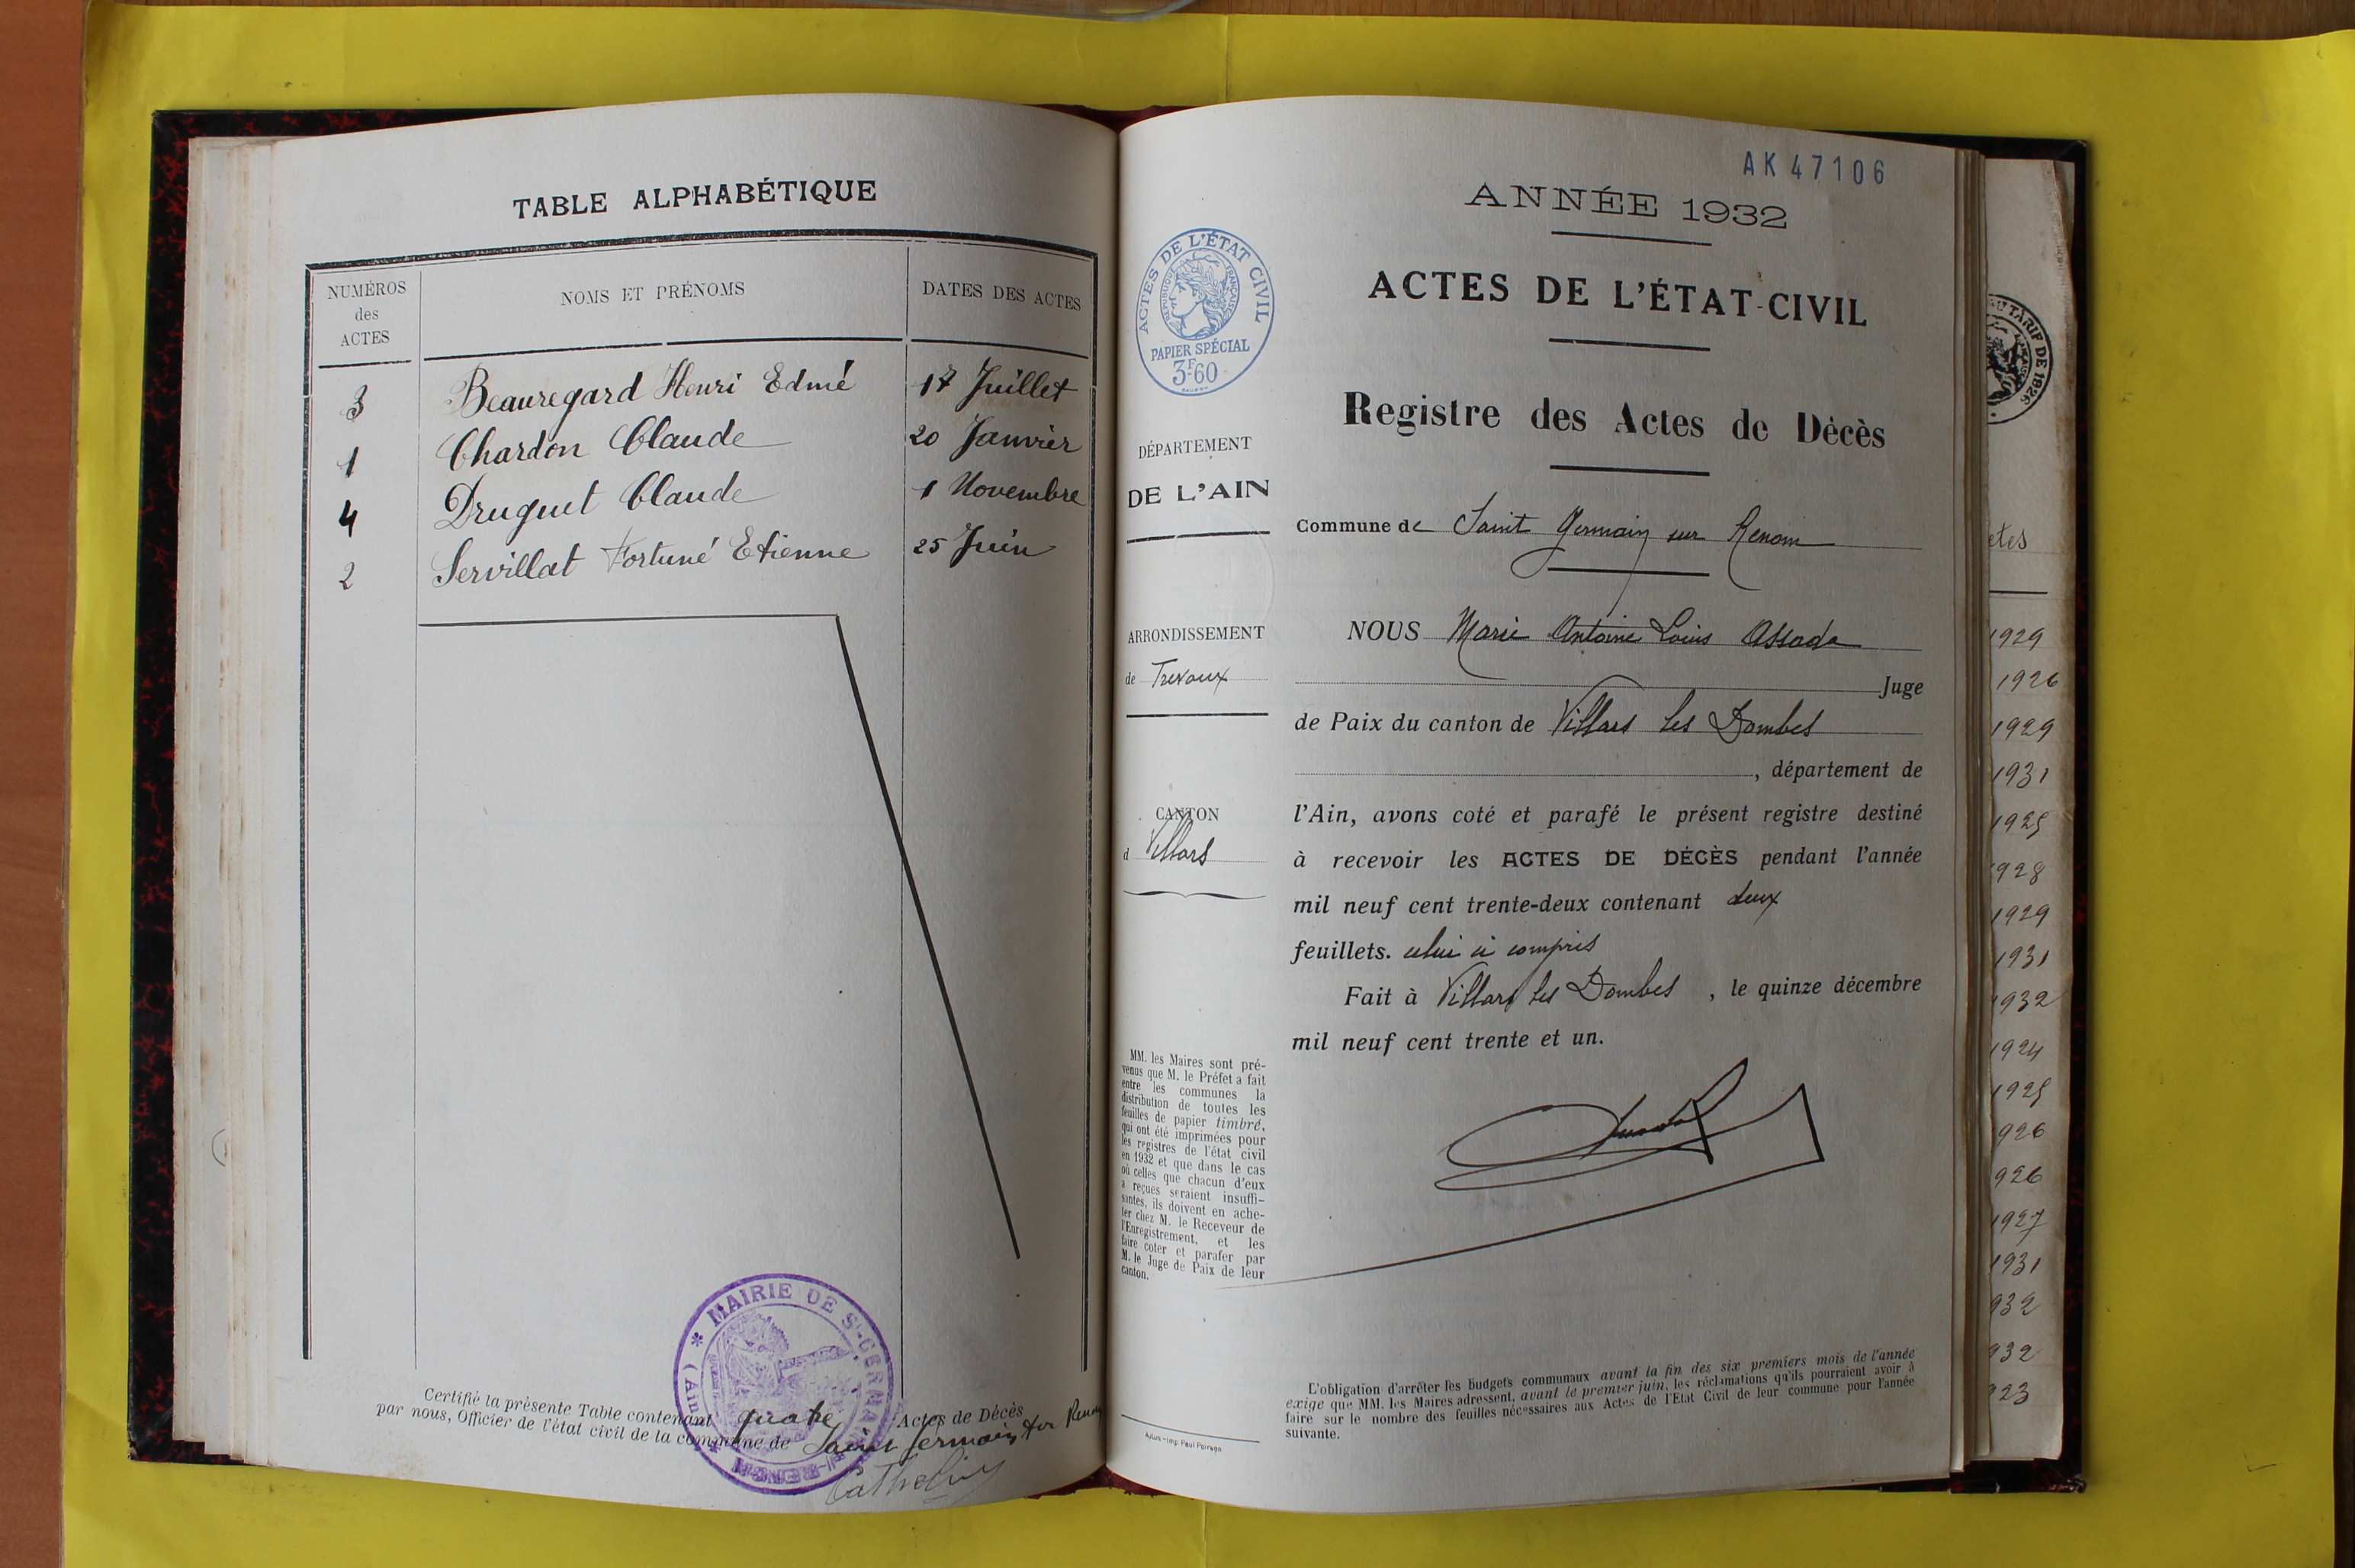 TABLE ALPHABÉTIQUE
NUMÉROS
des
ACTES
NOMS ET PRÉNOMS
DATES DES ACTES
3 Beauregard Henri Edmé 17 Juillet
1 Chardon Claude 20 Janvier
4 Druguet Claude 1 Novembre
2 Servillat Fortuné Etienne 25 Juin
MAIRIE DE St-GERMAIN
(Ain)
Certifié la présente Table contenant quatre Actes de Décès
par nous, Officier de l'état civil de la commune de Saint Germain sur Renom
AK 47106
ANNÉE 1932
ACTES DE L'ÉTAT-CIVIL
Registre des Actes de Décès
ACTES DE L'ÉTAT CIVIL
RÉPUBLIQUE FRANÇAISE
PAPIER SPÉCIAL
3F60
DÉPARTEMENT
DE L'AIN
ARRONDISSEMENT
de Trevoux
CANTON
d Villars
MM. les Maires sont pré-
venus que M. le Préfet a fait
entre les communes la
distribution de toutes les
feuilles de papier timbré,
qui ont été imprimées pour
les registres de l'état civil
en 1932 et que dans le cas
où celles que chacun d'eux
a reçues seraient insuffi-
santes, ils doivent en ache-
ter chez M. le Receveur de
l'Enregistrement, et les
faire coter et parafer par
M. le Juge de Paix de leur
canton.
Commune de Saint Germain sur Renom
NOUS Marie Antoine Louis
Juge
de Paix du canton de Villars les Dombes
, département de
l'Ain, avons coté et parafé le présent registre destiné
à recevoir les ACTES DE DÉCÈS pendant l'année
mil neuf cent trente-deux contenant deux
feuillets. celui ci compris
Fait à Villars les Dombes , le quinze décembre
mil neuf cent trente et un.
L'obligation d'arrêter les budgets communaux avant la fin des six premiers mois de l'année
exige que MM. les Maires adressent, avant le premier juin, les réclamations qu'ils pourraient avoir à
faire sur le nombre des feuilles nécessaires aux Actes de l'Etat Civil de leur commune pour l'année
suivante.
TARIF DE 1926
1929
1926
1929
1931
1925
928
1929
1931
1932
1924
1925
926
926
1927
1931
932
932
923